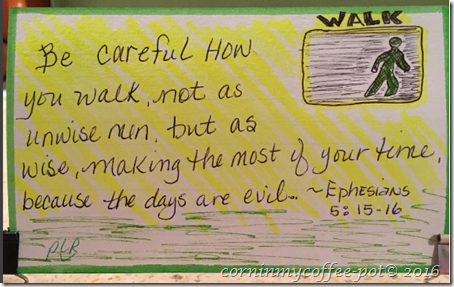 WALK
Be careful How
you walk, not as
unwise men, but as
wise, making the most of your time,
because the days are evil... ~Ephesians
5:15-16
PLB
corninmycoffee-pot© 2016